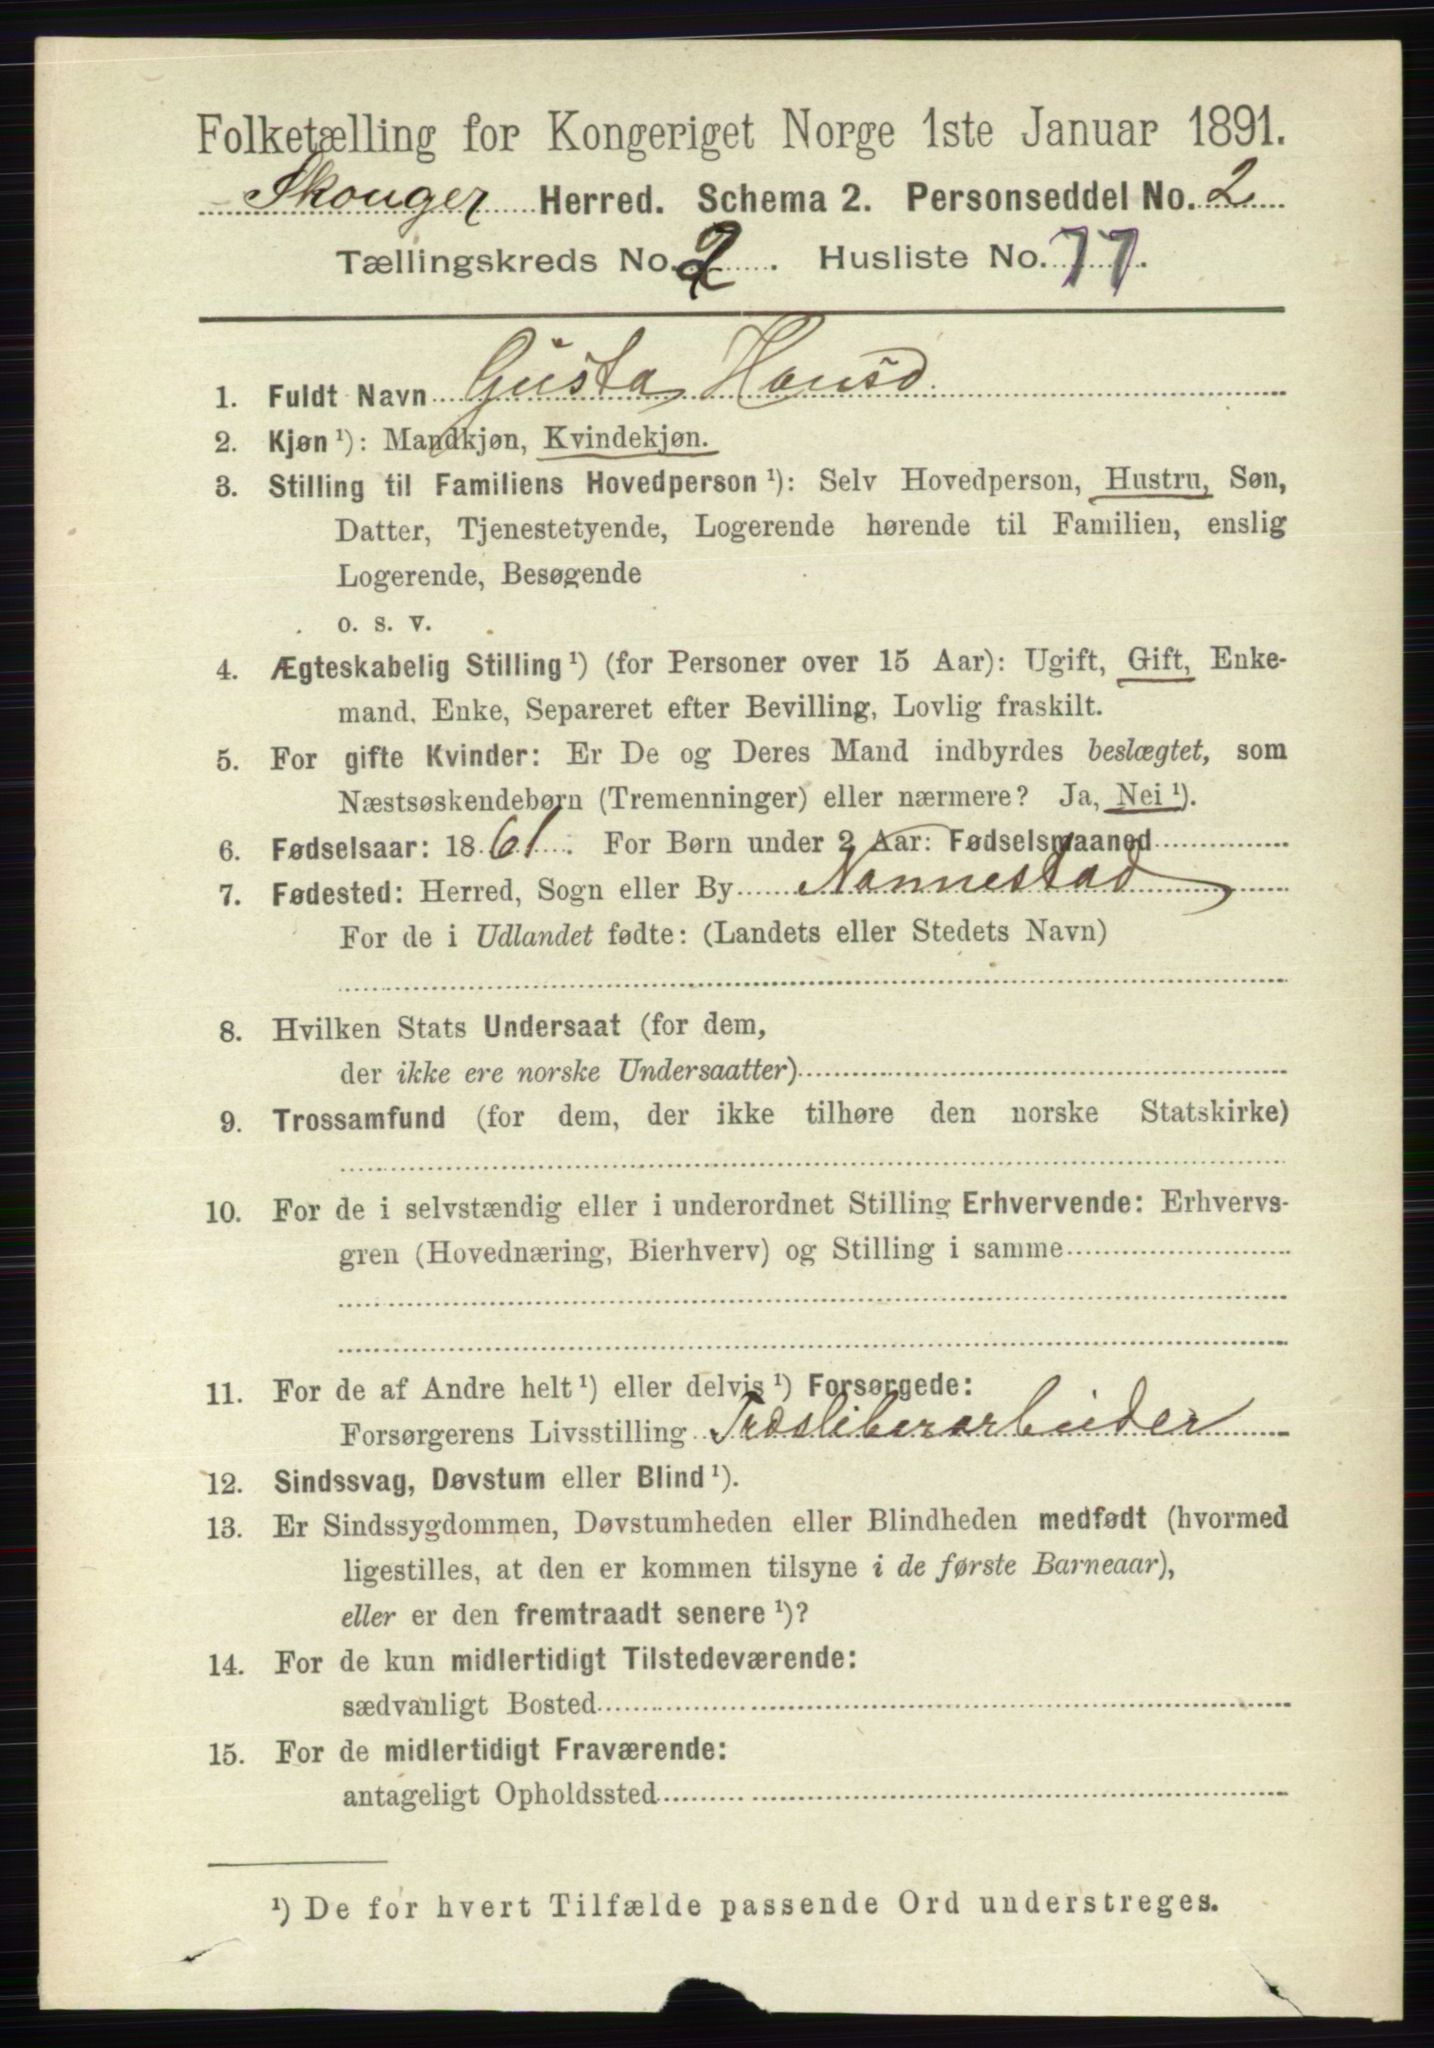 Folketælling for Kongeriget Norge 1ste Januar 1891.
Skouger Herred. Schema 2. Personseddel No. 2
Tællingskreds No. 2. Husliste No. 77.
1. Fuldt Navn Gusta Hansd.
2. Kjøn ¹): Mandkjøn, Kvindekjøn.
3. Stilling til Familiens Hovedperson ¹): Selv Hovedperson, Hustru, Søn,
Datter, Tjenestetyende, Logerende hørende til Familien, enslig
Logerende, Besøgende
o. s. v.
4. Ægteskabelig Stilling ¹) (for Personer over 15 Aar): Ugift, Gift, Enke-
mand, Enke, Separeret efter Bevilling, Lovlig fraskilt.
5. For gifte Kvinder: Er De og Deres Mand indbyrdes beslægtet, som
Næstsøskendebørn (Tremenninger) eller nærmere? Ja, Nei ¹).
6. Fødselsaar: 1861. For Børn under 2 Aar: Fødselsmaaned
7. Fødested: Herred, Sogn eller By Nannestad
For de i Udlandet fødte: (Landets eller Stedets Navn)
8. Hvilken Stats Undersaat (for dem,
der ikke ere norske Undersaatter)
9. Trossamfund (for dem, der ikke tilhøre den norske Statskirke)
10. For de i selvstændig eller i underordnet Stilling Erhvervende: Erhvervs-
gren (Hovednæring, Bierhverv) og Stilling i samme
11. For de af Andre helt ¹) eller delvis ¹) Forsørgede:
Forsørgerens Livsstilling Træsliberarbeider
12. Sindssvag, Døvstum eller Blind ¹).
13. Er Sindssygdommen, Døvstumheden eller Blindheden medfødt (hvormed
ligestilles, at den er kommen tilsyne i de første Barneaar),
eller er den fremtraadt senere ¹)?
14. For de kun midlertidigt Tilstedeværende:
sædvanligt Bosted
15. For de midlertidigt Fraværende:
antageligt Opholdssted
¹) De for hvert Tilfælde passende Ord understreges.